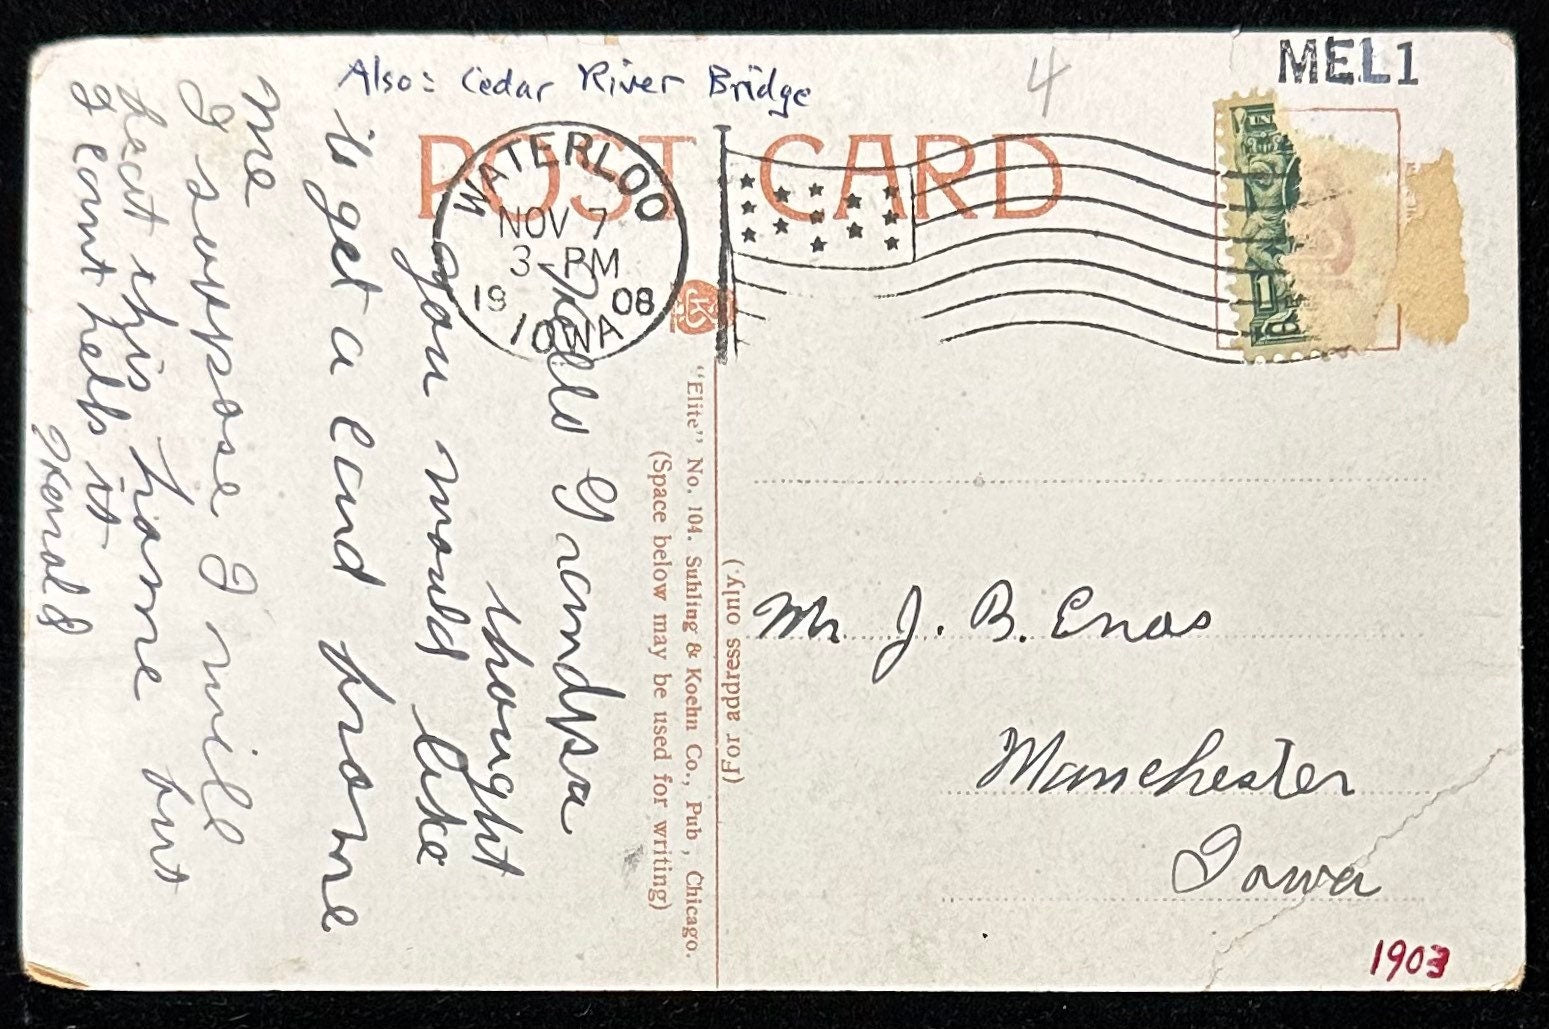 Also: Cedar River Bridge
4
MEL1
POST CARD
WATERLOO
NOV 7
3-PM
19 08
IOWA
"Elite" No. 104. Suhling & Koehn Co., Pub, Chicago.
(Space below may be used for writing)
(For address only.)
Hello Grandpa
thought
you would like
to get a card from
me
I suppose I will
beat this home but
I cant help it
Gerald
Mr. J. B. Enos
Manchester
Iowa
1903